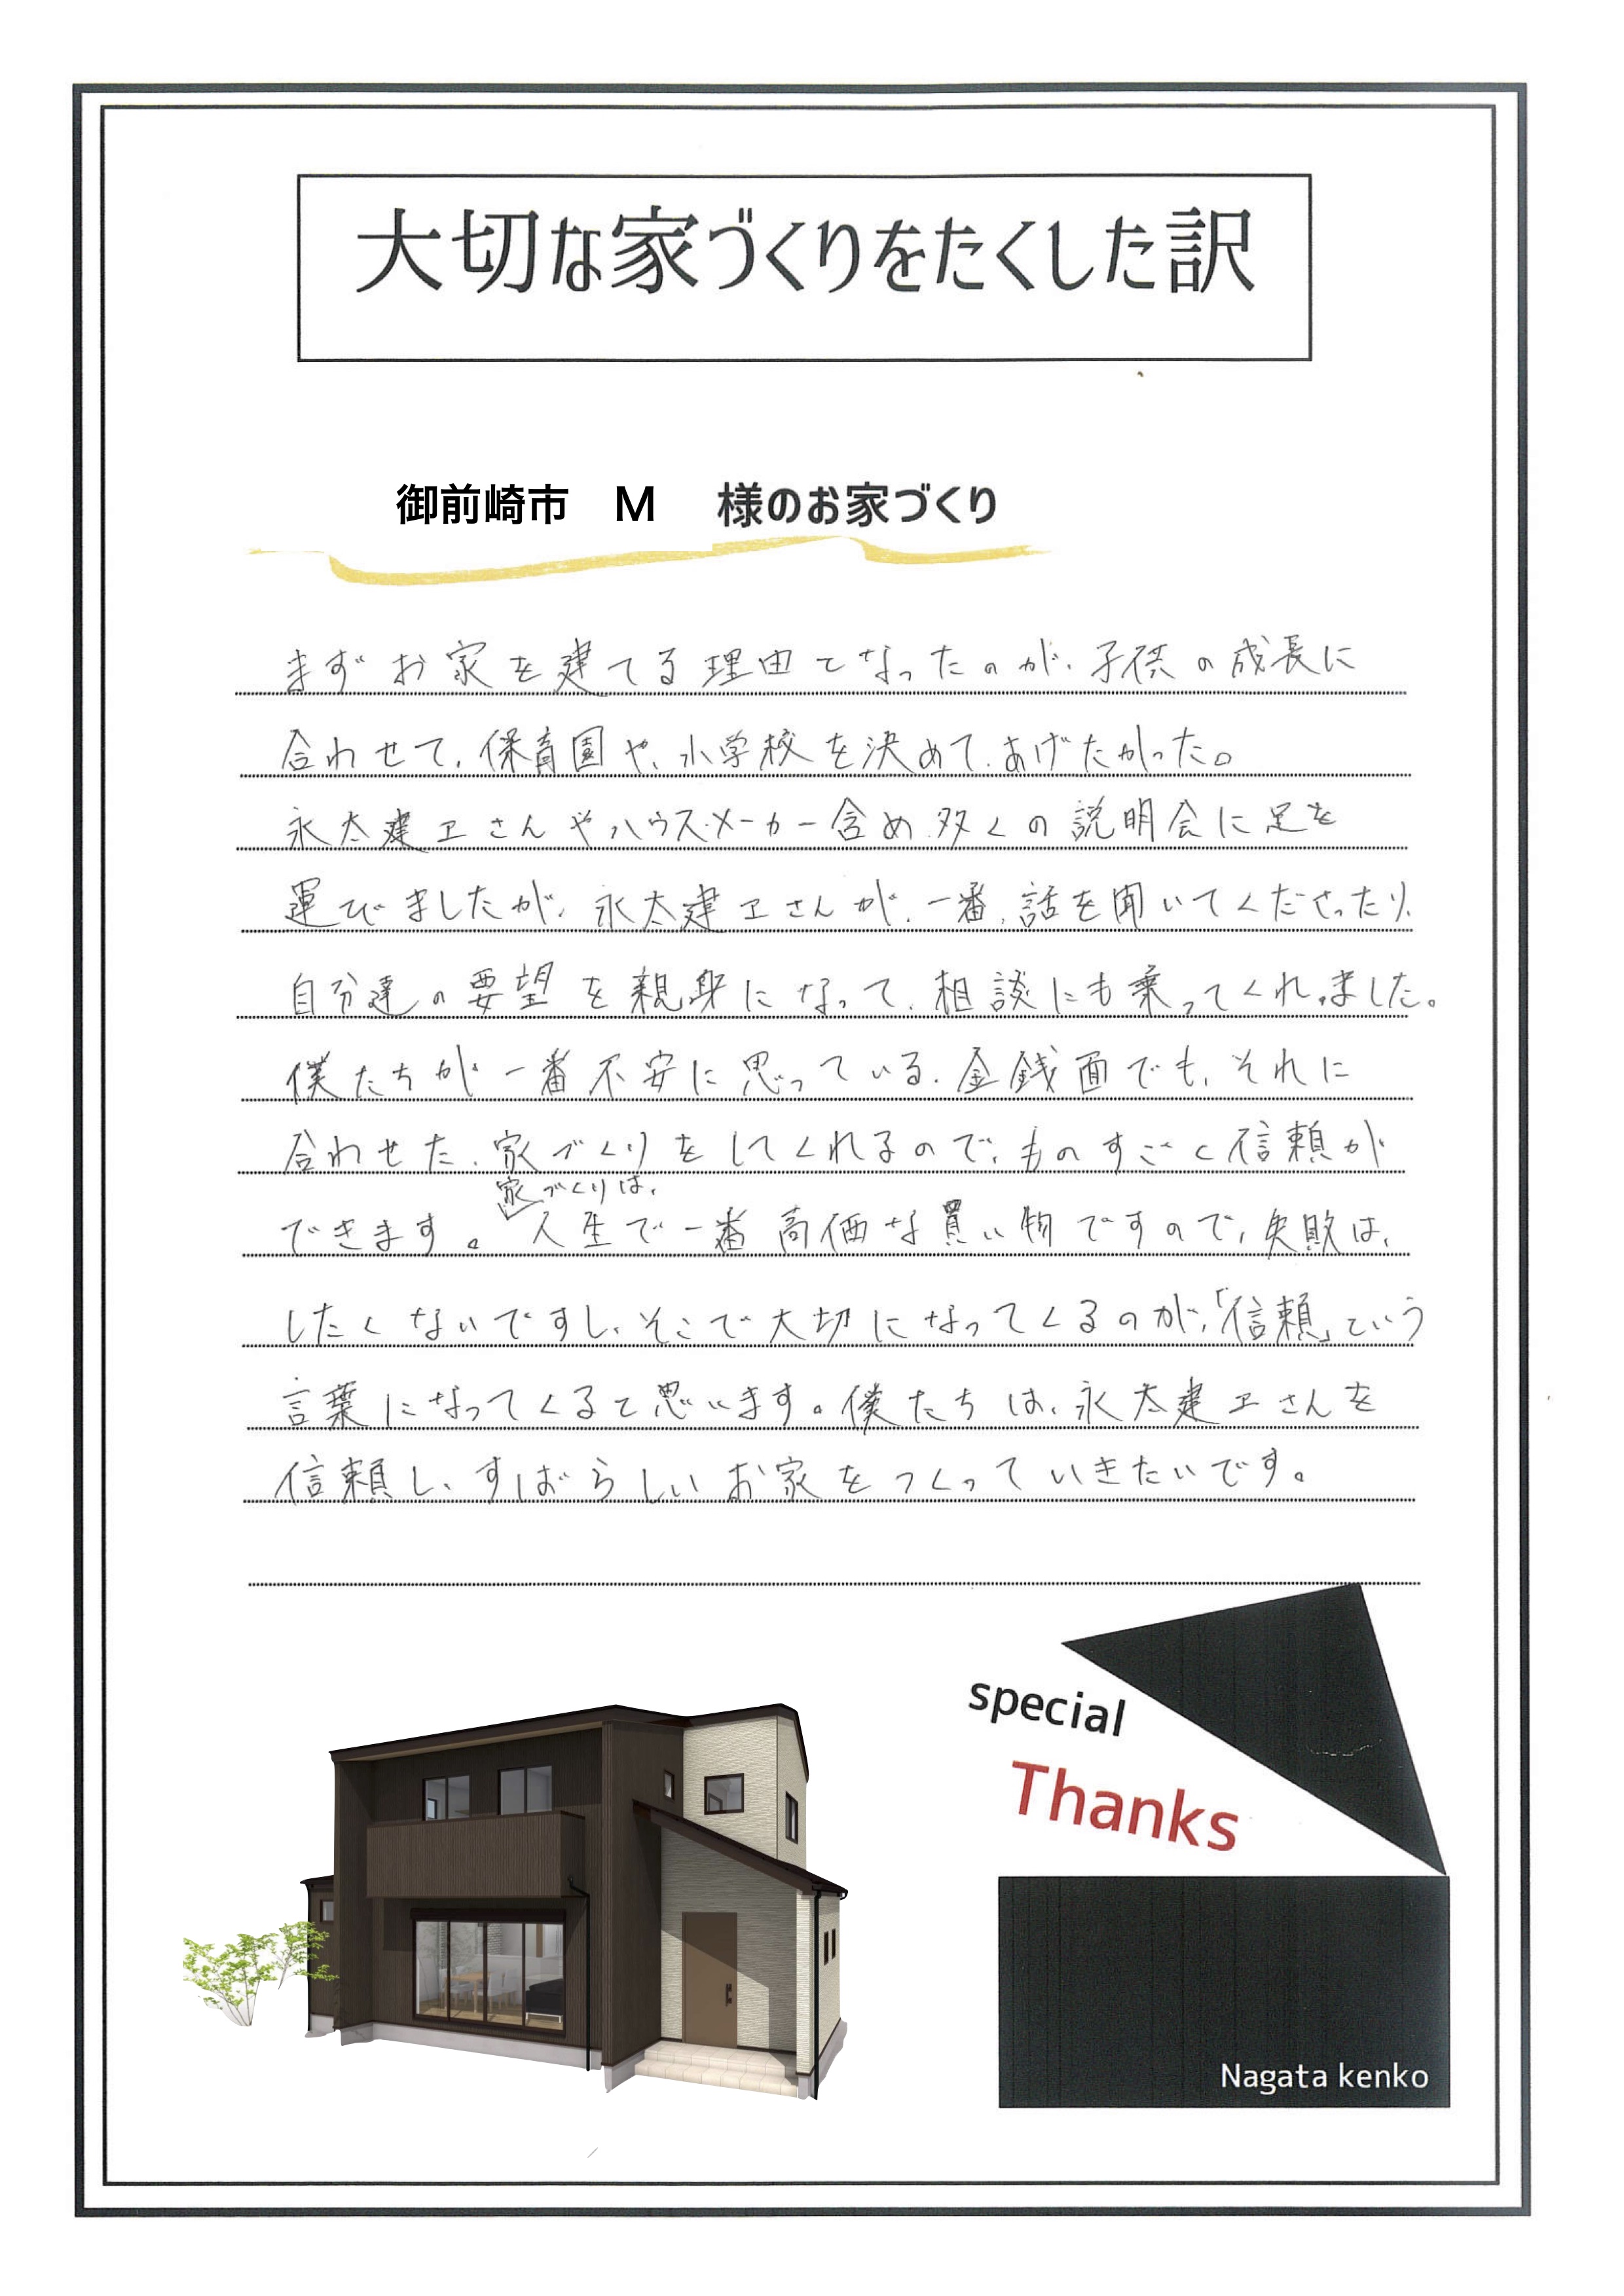 大切な家づくりをたくした訳
御前崎市 M 様のお家づくり
まずお家を建てる理由となったのが、子供の成長に
合わせて、保育園や、小学校を決めて、あげたかった。
永太建工さんやハウスメーカー含め、多くの説明会に足を
運びましたが、永太建工さんが、一番、話を聞いてくださったり、
自分達の要望を親身になって、相談にも乗ってくれました。
僕たちが一番不安に思っている、金銭面でも、それに
合わせた、家づくりをしてくれるので、ものすごく信頼が
家づくりは、
できます。人生で一番高価な買い物ですので、失敗は、
したくないですし、そこで大切になってくるのが、「信頼」という
言葉になってくると思います。僕たちは、永太建工さんを
信頼し、すばらしいお家をつくっていきたいです。
special
Thanks
Nagata kenko